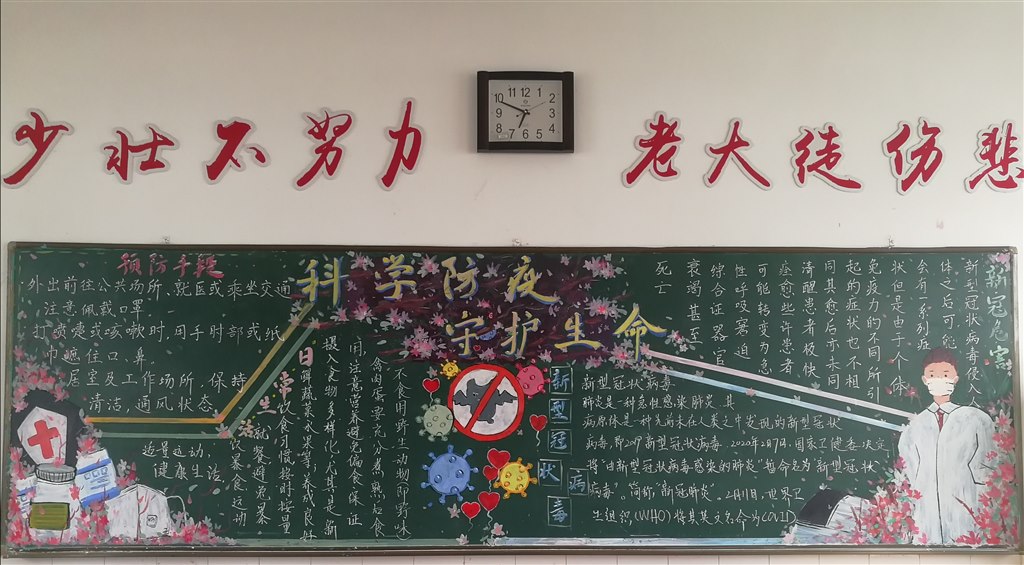 少壮不努力
老大徒伤悲
11 12 1
10 2
9 3
8 4
7 6 5
科学防疫
守护生命
预防手段
外出前往公共场所、就医或乘坐交通
注意佩戴口罩
打喷嚏或咳嗽时,用手肘部或纸
巾遮住口、鼻
居室及工作场所,保持
清洁,通风状态
适量运动,
健康生活
日常
生
饮食习惯,按时按量
就餐避免暴
饮暴食适动
摄入食物多样化,尤其是新
用,注意营养避免偏食保证
禽肉蛋要充分煮熟后食
(不食用野生动物即野味)
新型冠状病毒
新型冠状病毒
肺炎是一种急性感染肺炎,其
病原体是一种先前未在人类之中发现的新型冠状
病毒,即2019新型冠状病毒。2020年2月7日,国家卫健委决定
将"由新型冠状病毒感染的肺炎"暂命名为"新型冠状
病毒",简称"新冠肺炎"。2月11日,世界卫
生组织(WHO)将其英文名命为COVID
新冠危害
新型冠状病毒侵入人
体之后可能
会有一系列症
状但是由于个体
免疫力的不同所引
起的症状也不相
同其愈后亦未同
清醒患者极快
痊愈些许患者
可能转变为急
性呼吸窘迫
综合证器官
衰竭甚至
死亡